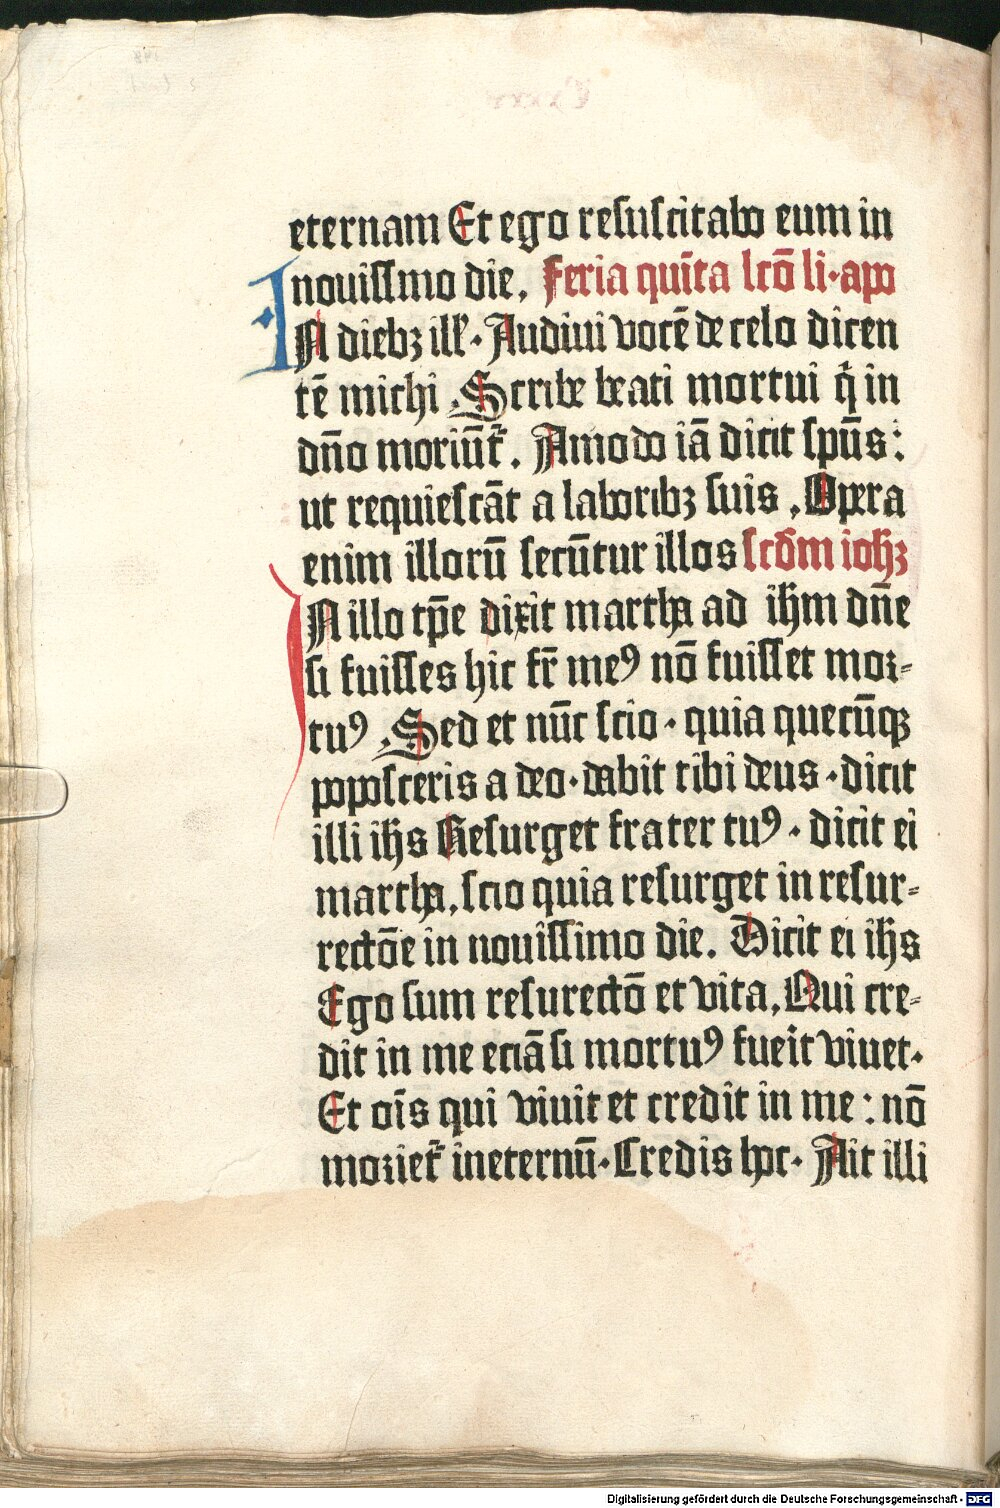 eternam Et ego resuscitabo eum in
nouissmo die. feria quīta lcō li·apo
IN diebꝫ ill᷑· Audiui vocē de celo dicen
tē michi .Scribe beati mortui q̇ in
dn̄o moriūt᷑. Amodo iā dicit spūs:
ut requiescāt a laboribꝫ suis .Opera
enim illorū secūtur illos scd̄m ioh̄ꝫ
IN illo tp̄e dixit martha ad ih̄m dn̄e
si fuisses hic fr̄ meꝰ nō fuisset mor-
tuꝰ .Sed et nūc scio· quia quecūqꝫ
poposceris a deo· dabit tibi deus ·dicit
illi ih̄s Resurget frater tuꝰ · dicit ei
martha.scio quia resurget in resur-
rectōe in nouissimo die. Dicit ei ih̄s
Ego sum resurectō et vita.Qui cre-
dit in me eciā si mortuꝰ fueīt viuet·
Et oīs qui viuit et credit in me : nō
moriet᷑ ineternū·Credis hoc· Ait illi
Digitalisierung gefördert durch die Deutsche Forschungsgemeinschaft - DFG